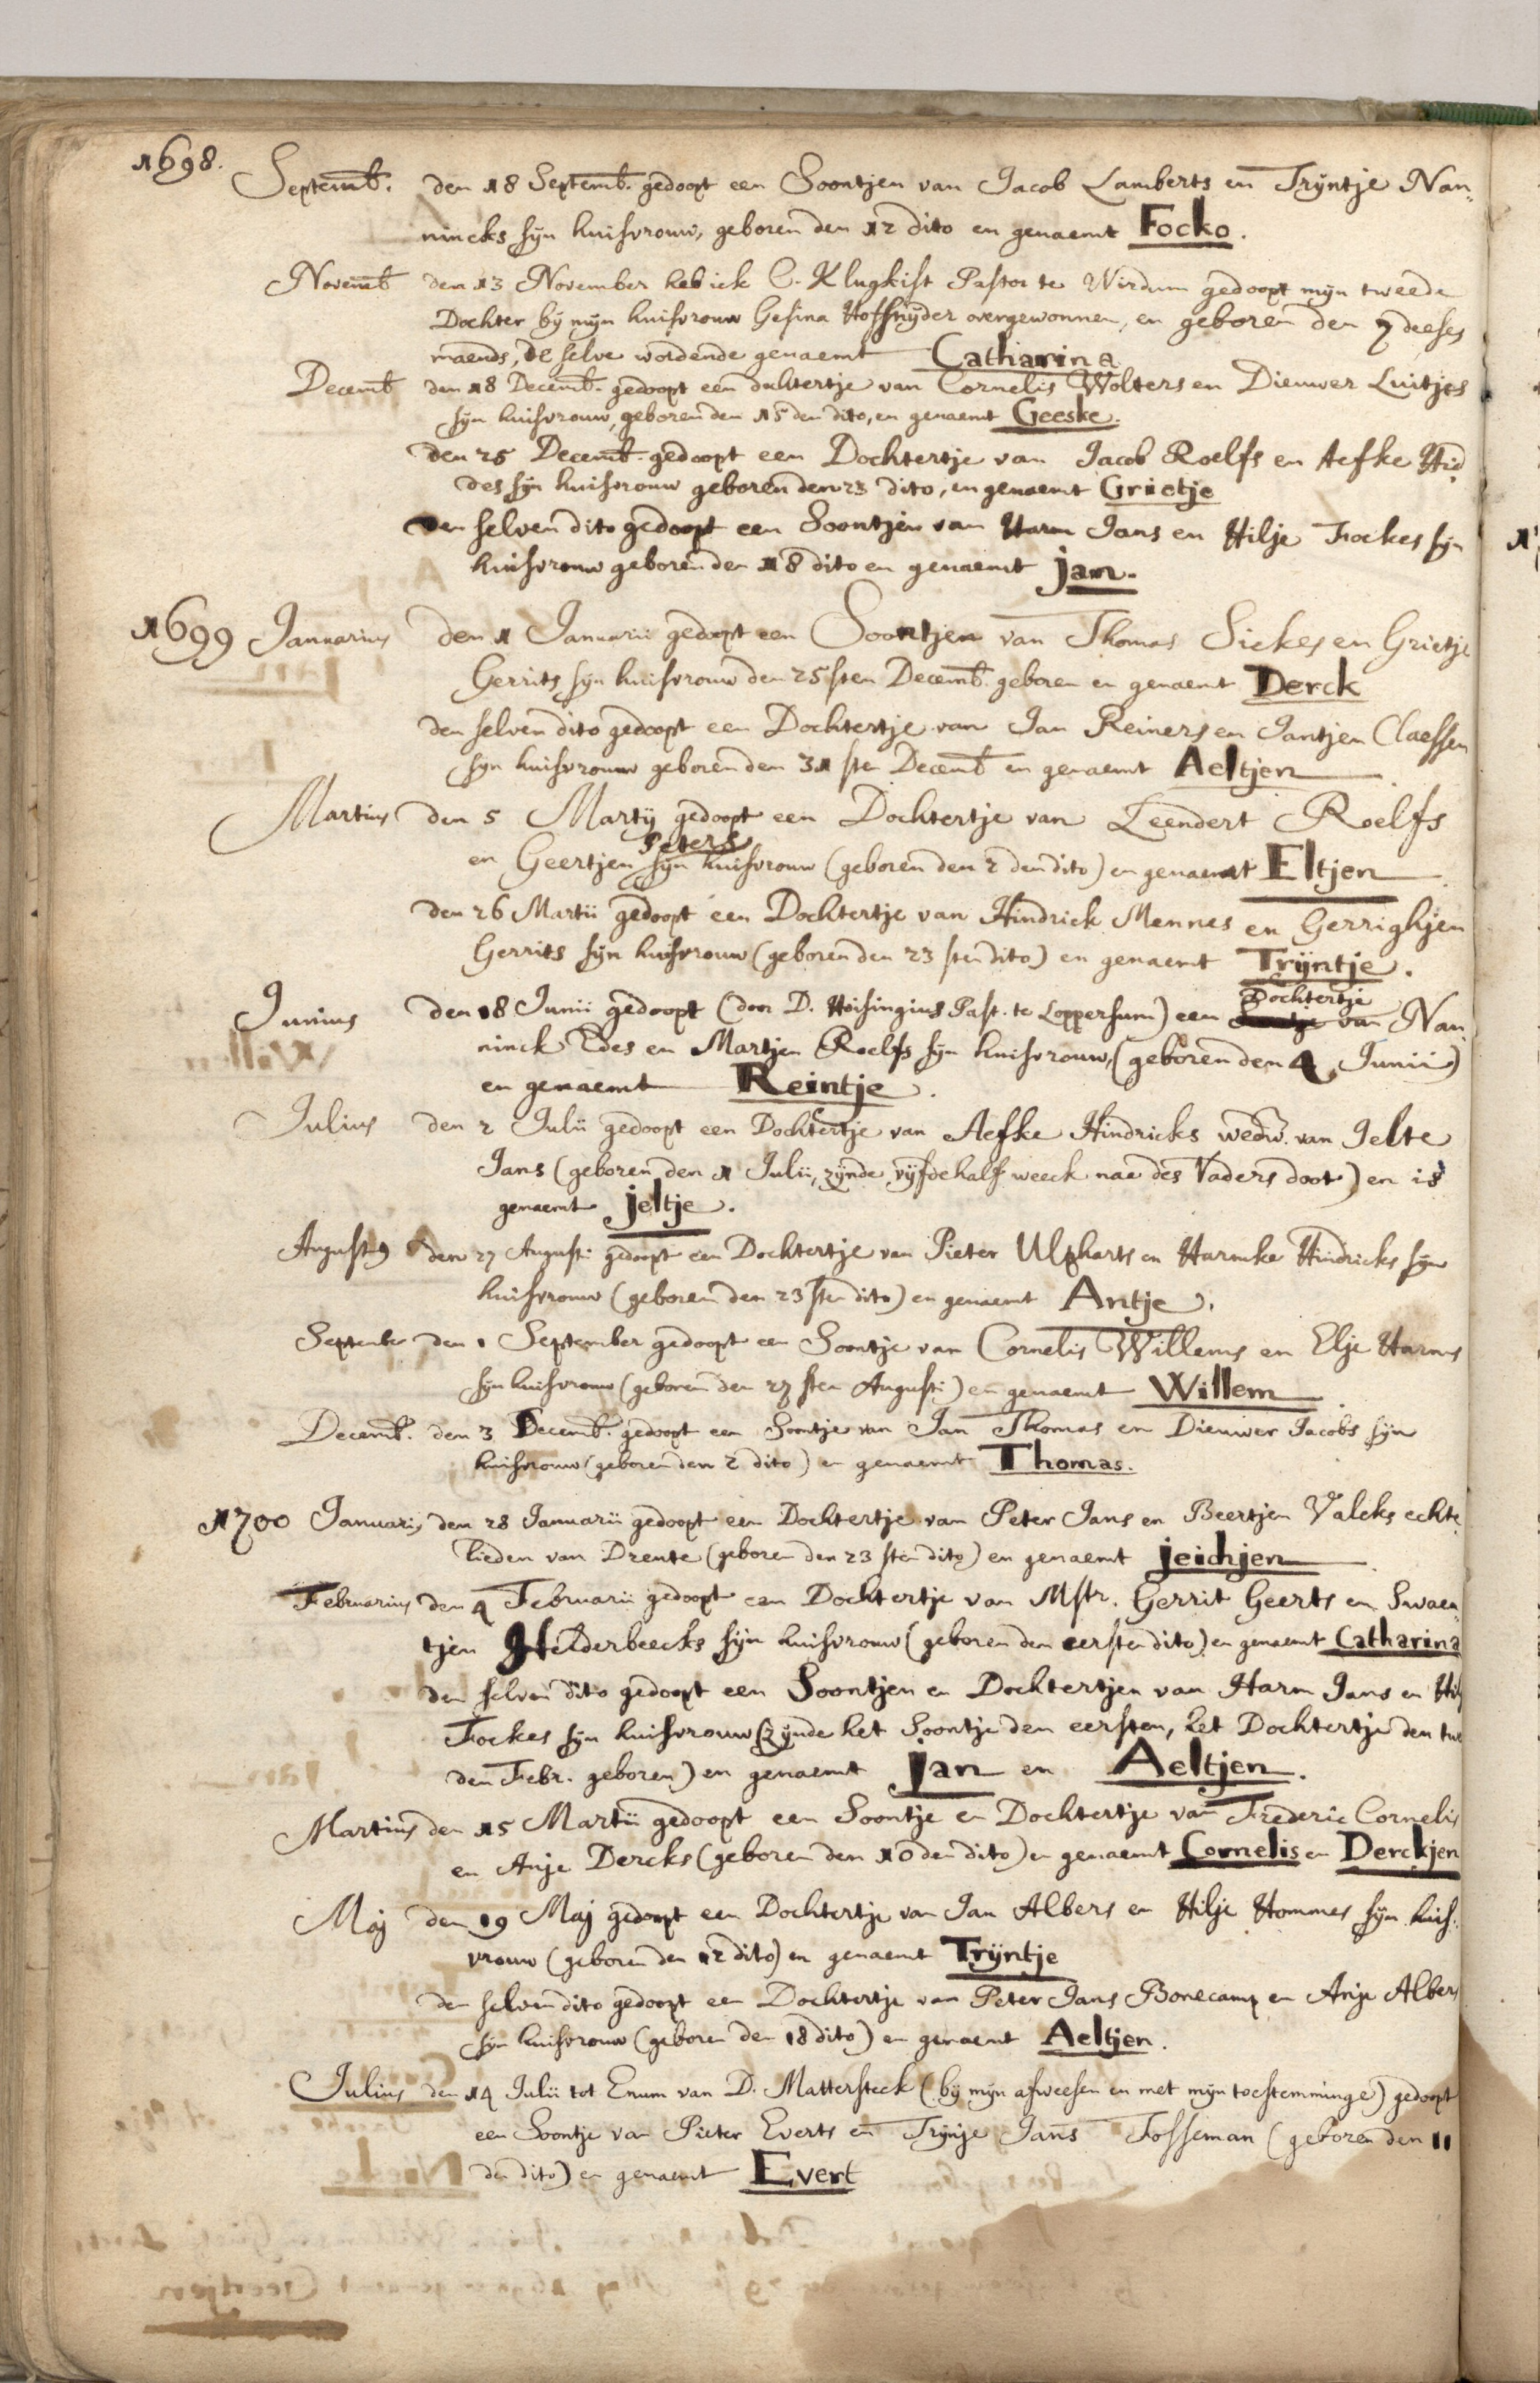 1698. Septemb. den 18 Septemb. gedoopt een Soontjen van Jacob Lamberts en Trÿntje Nan-
nincks sÿn huisvrouw, geboren den 12 dito en genaemt Focko.
Novemb den 13 November heb ick C. Klugkist Pastor te Wirdum gedoopt mÿn tweede
Dochter bÿ mÿn huisvrouw Gesina Hoffsnÿder overgewonnen, en geboren den 7 deeses
maends, de selve wordende genaemt Catharina
Decemb den 18 Decemb. gedoopt een dochtertje van Cornelis Wolters en Dieuwer Luitjes
sÿn huisvrouw, geboren den 15 den dito, en genaemt Geeske.
den 25 Decemb. gedoopt een Dochtertje van Jacob Roelfs en Aefke Hid
des sÿn huisvrouw geboren den 23 dito, en genaemt Grietje
den selven dito gedoopt een Soontjen van Harm Jans en Hilje Fockes sÿn
huisvrouw geboren den 18 dito en genaemt jan.
1699 Januarius den 1 Januarii gedoopt een Soontjen van Thomas Siekes en Grietje
Gerrits sÿn huisvrouw den 25sten Decemb. geboren en genaemt Derck
den selven dito gedoopt een Dochtertje van Jan Reiners en Jantjen Claessen
sÿn huisvrouw geboren den 31 sten Decemb en genaemt Aeltjen
Martius den 5 Martÿ gedoopt een Dochtertje van Leendert Roelfs
Peters
en Geertjen sÿn huisvrouw (geboren den 2 den dito) en genaemt Eltjen
den 26 Martii gedoopt een Dochtertje van Hindrick Mennes en Gerrighjen
Gerrits sÿn huisvrouw (geboren den 23 sten dito) en genaemt Trÿntje.
Dochtertje
Junius den 18 Junii gedoopt (door D. Hoisingius Past. te Loppersum) een van Nan
ninck Edes en Martjen Roelfs sÿn huisvrouw, (geboren den 4 Junii)
en genaemt Reintje.
Julius den 2 Julii gedoopt een Dochtertje van Aefke Hindricks wedw. van Jelte
Jans (geboren den 1 Julii, zÿnde vÿfdehalf weeck nae des Vaders doot) en is
genaemt jeltje.
August9 den 27 Augusti gedoopt een Dochtertje van Pieter Ulpharts en Harmke Hindricks sÿn
huisvrouw (geboren den 23 sten dito) en genaemt Antje.
September den 1 September gedoopt een Soontje van Cornelis Willems en Elje Harms
sÿn huisvrouw (geboren den 27 sten Augusti) en genaemt Willem
Decemb. den 3 Decemb. gedoopt een Soontje van Jan Thomas en Dieuwer Jacobs sÿn
huisvrouw (geboren den 2 dito) en genaemt Thomas.
1700 Januari9 den 28 Januarii gedoopt een Dochtertje van Peter Jans en Beertjen Valcks echte
lieden van Drente (geboren den 23 sten dito) en genaemt jeichjen
Februarius den 4 Februarii gedoopt een Dochtertje van Mstr. Gerrit Geerts en Swaen-
tjen Helderbeecks sÿn huisvrouw (geboren den eersten dito) en genaemt Catharina
den selven dito gedoopt een Soontjen en Dochtertjen van Harm Jans en Hilj
Fockes sÿn huisvrouw (zÿnde het Soontje den eersten, het Dochtertje den twe
den Febr. geboren) en genaemt jan en Aeltjen.
Martius den 15 Martii gedoopt een Soontje en Dochtertje van Frederic Cornelis
en Anje Dercks (geboren den 10 den dito) en genaemt Cornelis en Derckjen
Maj den 19 Maj gedoopt een Dochtertje van Jan Albers en Hilje Hommes sÿn huis-
vrouw (geboren den 12 dito) en genaemt Trÿntje
den selven dito gedoopt een Dochtertje van Peter Jans Bonecamp en Anje Albers
sÿn huisvrouw (geboren den 18 dito) en genaemt Aeltjen.
Julius den 14 Julii tot Enum van D. Mattersteck (bÿ mÿn afweesen en met mÿn toestemminge) gedoopt
een Soontje van Pieter Everts en Trÿnje Jans Fosseman (geboren den 11
den dito) en genaemt Evert